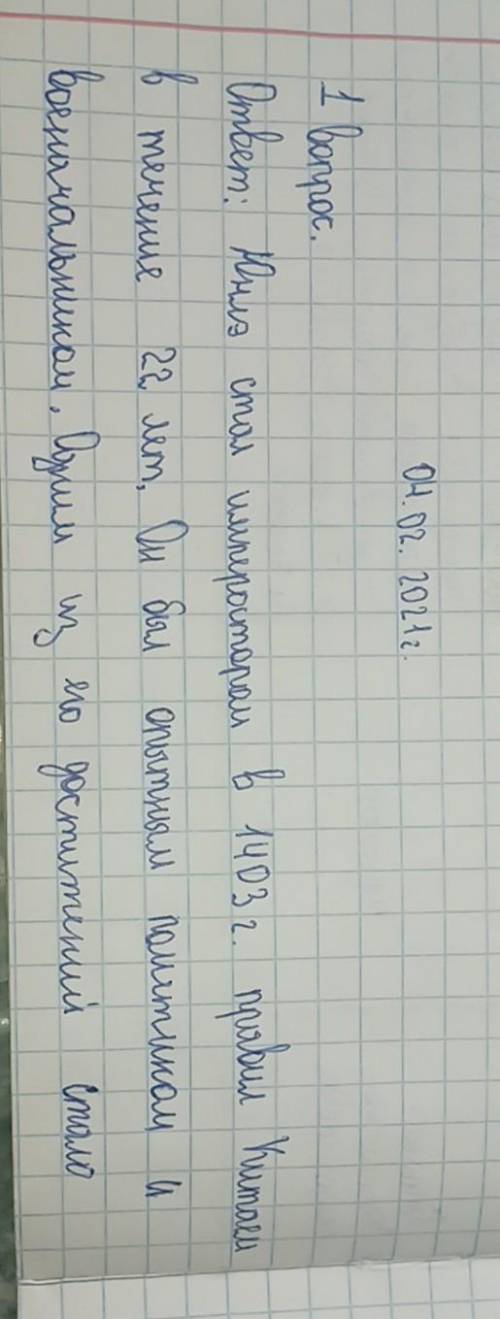 04.02.2021г.
1 вопрос.
Ответ: Юнлэ стал императором в 1403 г. правил Китаем
в течение 22 лет, Он был опытным политиком и
военачальником. Одним из его достижений стало